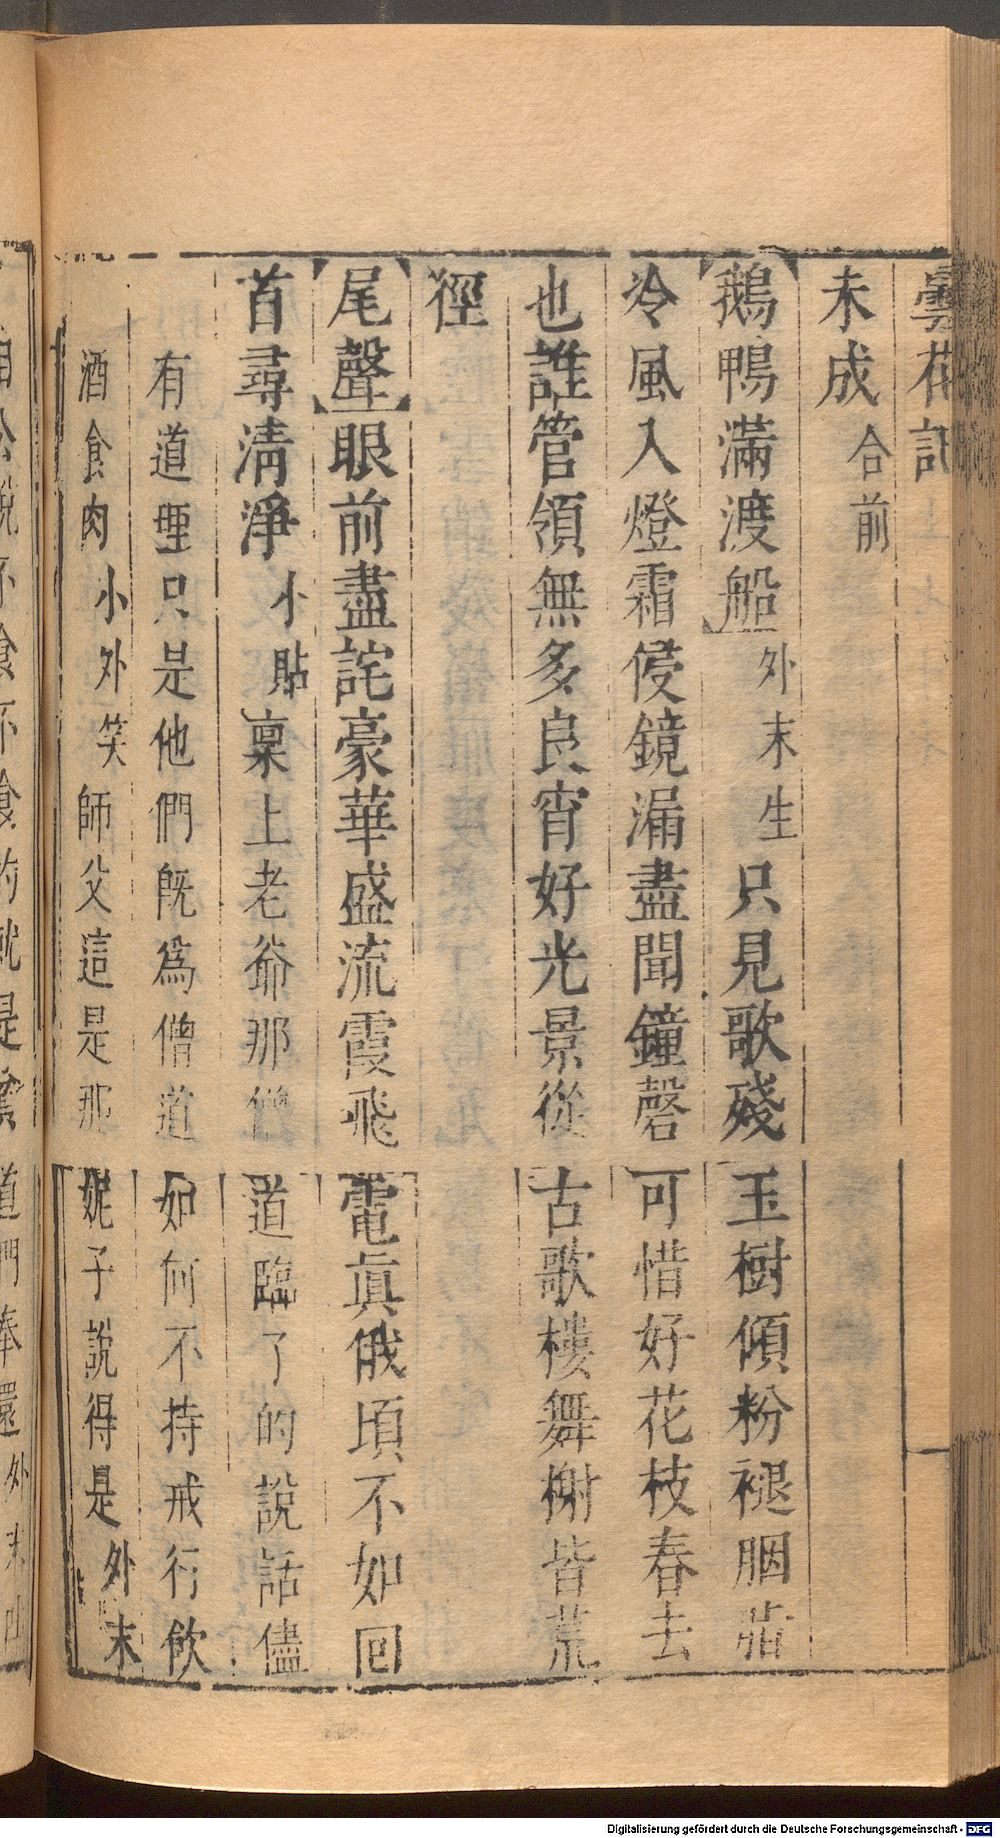 曇花記
未成合前
鵝鴨滿渡船外末生只見歌殘玉樹傾粉褪胭脂
冷風入燈霜侵鏡漏盡聞鐘磬可惜好花枝春去
也誰管領無多良宵好光景從古歌樓舞榭皆荒
徑
尾聲眼前盡詫豪華盛流霞飛電眞俄頃不如回
首尋清淨小貼稟上老爺那僧道臨了的說話儘
有道理只是他們既爲僧道如何不持戒行飲
酒食肉小外笑師父這是那妮子說得是外末
Digitalisierung gefördert durch die Deutsche Forschungsgemeinschaft - DFG